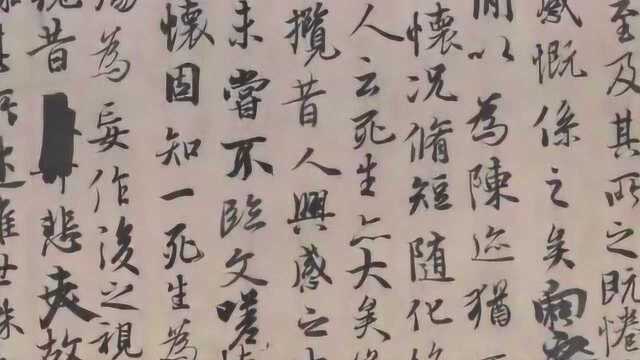 至及其所之既惓
感慨係之矣向
閒以為陳迹猶
懷況脩短隨化終
人云死生亦大矣
攬昔人興感之
未嘗不臨文嗟
懷固知一死生為
殤為妄作後之視
視昔悲夫故
其所述雖世殊